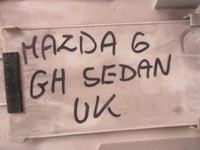 MAZDA 6
GH SEDAN
UK